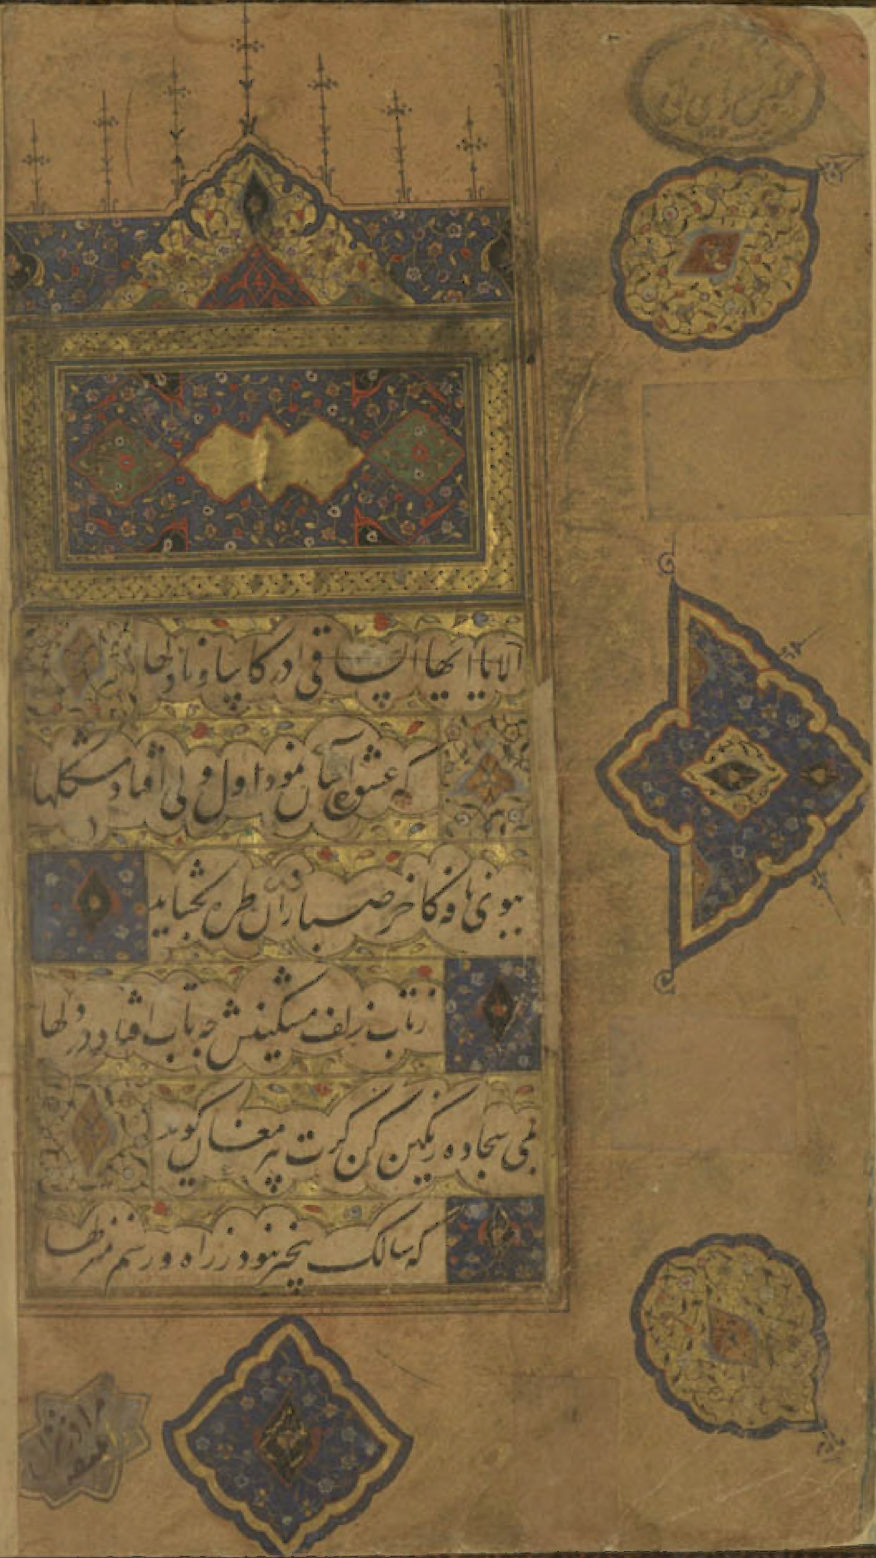 الا یا ایها الساقی ادر کاسا و ناولها
که عشق آسان نمود اول ولی افتاد مشکلها
ببوی نافه کاخر صبا زان طره بگشاید
ز تاب زلف مشکینش چه تاب افتاد در دلها
بمی سجاده رنگین کن گرت پیر مغان گوید
که سالک بیخبر نبود ز راه و رسم منزلها